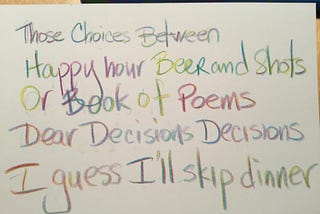 Those Choices Between
Happy hour Beer and Shots
Or Book of Poems
Dear Decisions Decisions
I guess I'll skip dinner